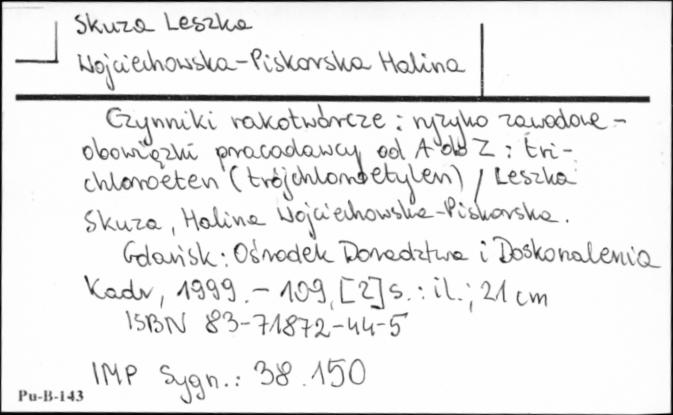 Skuza Leszka
Wojciechowska-Piskorska Halina
Czynniki rakotwórcze : ryzyko zawodowe -
obowiązki pracodawcy od A do Z : tri-
chloroeten (trójchloroetylen) / Leszka
Skuza, Halina Wojciechowska-Piskorska.
Gdańsk : Ośrodek Doradztwa i Doskonalenia
Kadr, 1999. - 109, [2] s. : il. ; 21 cm
ISBN 83-71872-44-5
IMP Sygn. : 38.150
Pu-B-143